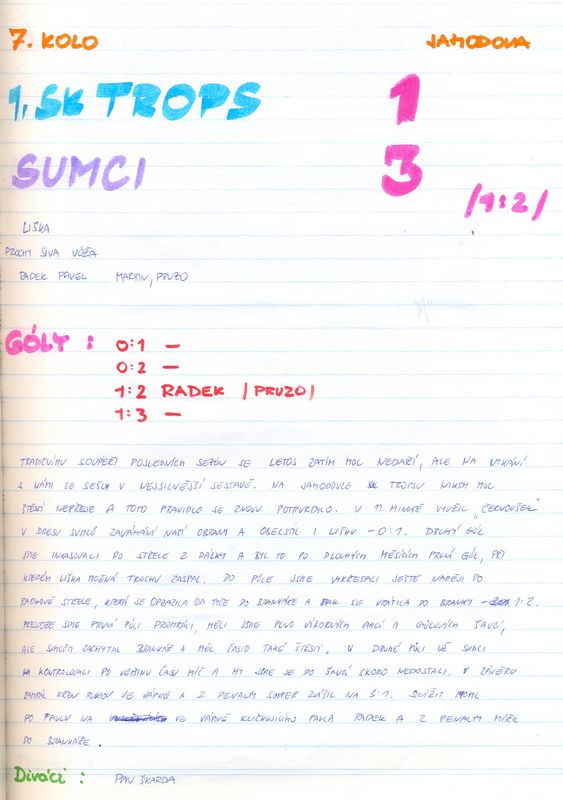 7. KOLO JAHODOVA
1. SK TROPS 1
SUMCI 3
/1:2/
LIŠKA
PROCHY SÍVA VÓŽA
RADEK PAVEL MARTIN, PRUZO
GÓLY : 0:1 —
0:2 —
1:2 RADEK /PRUZO/
1:3 —
TRADIČNÍMU SOUPEŘI POSLEDNÍCH SEZÓN SE LETOS ZATÍM MOC NEDAŘÍ, ALE NA UTKÁNÍ
S NÁMI SE SEŠLI V NEJSILNĚJŠÍ SESTAVĚ. NA JAHODOVCE TROPSU NIKDY MOC
ŠTĚSTÍ NEPŘEJE A TOTO PRAVIDLO SE ZNOVU POTVRDILO. V 11. MINUTĚ VYUŽIL „ČERNOUŠEK"
V DRESU SUMCŮ ZAVÁHÁNÍ NAŠÍ OBRANY A OBELSTIL I LIŠKU – 0:1. DRUHÝ GÓL
JSME INKASOVALI PO STŘELE Z DÁLKY A BYL TO PO DLOUHÝCH MĚSÍCÍCH PRVNÍ GÓL, PŘI
KTERÉM LIŠKA MOŽNÁ TROCHU ZASPAL. DO PŮLE JSME VYKŘESALI JEŠTĚ NADĚJI PO
RADKOVĚ STŘELE, KTERÁ SE ODRAZILA OD TYČE DO BRANKÁŘE A PAK SE VRÁTILA DO BRANKY – 1:2.
PŘESTOŽE JSME PRVNÍ PŮLI PROHRÁLI, MĚLI JSME PLNO VÝBORNÝCH AKCÍ A GÓLOVÝCH ŠANCÍ,
ALE SUMCŮM ZACHYTAL BRANKÁŘ A MĚL ČASTO TAKÉ ŠTĚSTÍ. V DRUHÉ PŮLI UŽ SUMCI
KONTROLOVALI PO VĚTŠINU ČASU MÍČ A MY JSME SE DO ŠANCÍ SKORO NEDOSTALI. V ZÁVĚRU
ZAHRÁL RUKOU VE VÁPNĚ A Z PENALTY SOUPEŘ ZVÝŠIL NA 3:1. SNÍŽIT MOHL
PO FAULU NA VE VÁPNĚ KLIČKUJÍCÍHO PAVLA RADEK A Z PENALTY MÍŘIL
DO BRANKÁŘE.
Diváci : PAN ŠKARDA